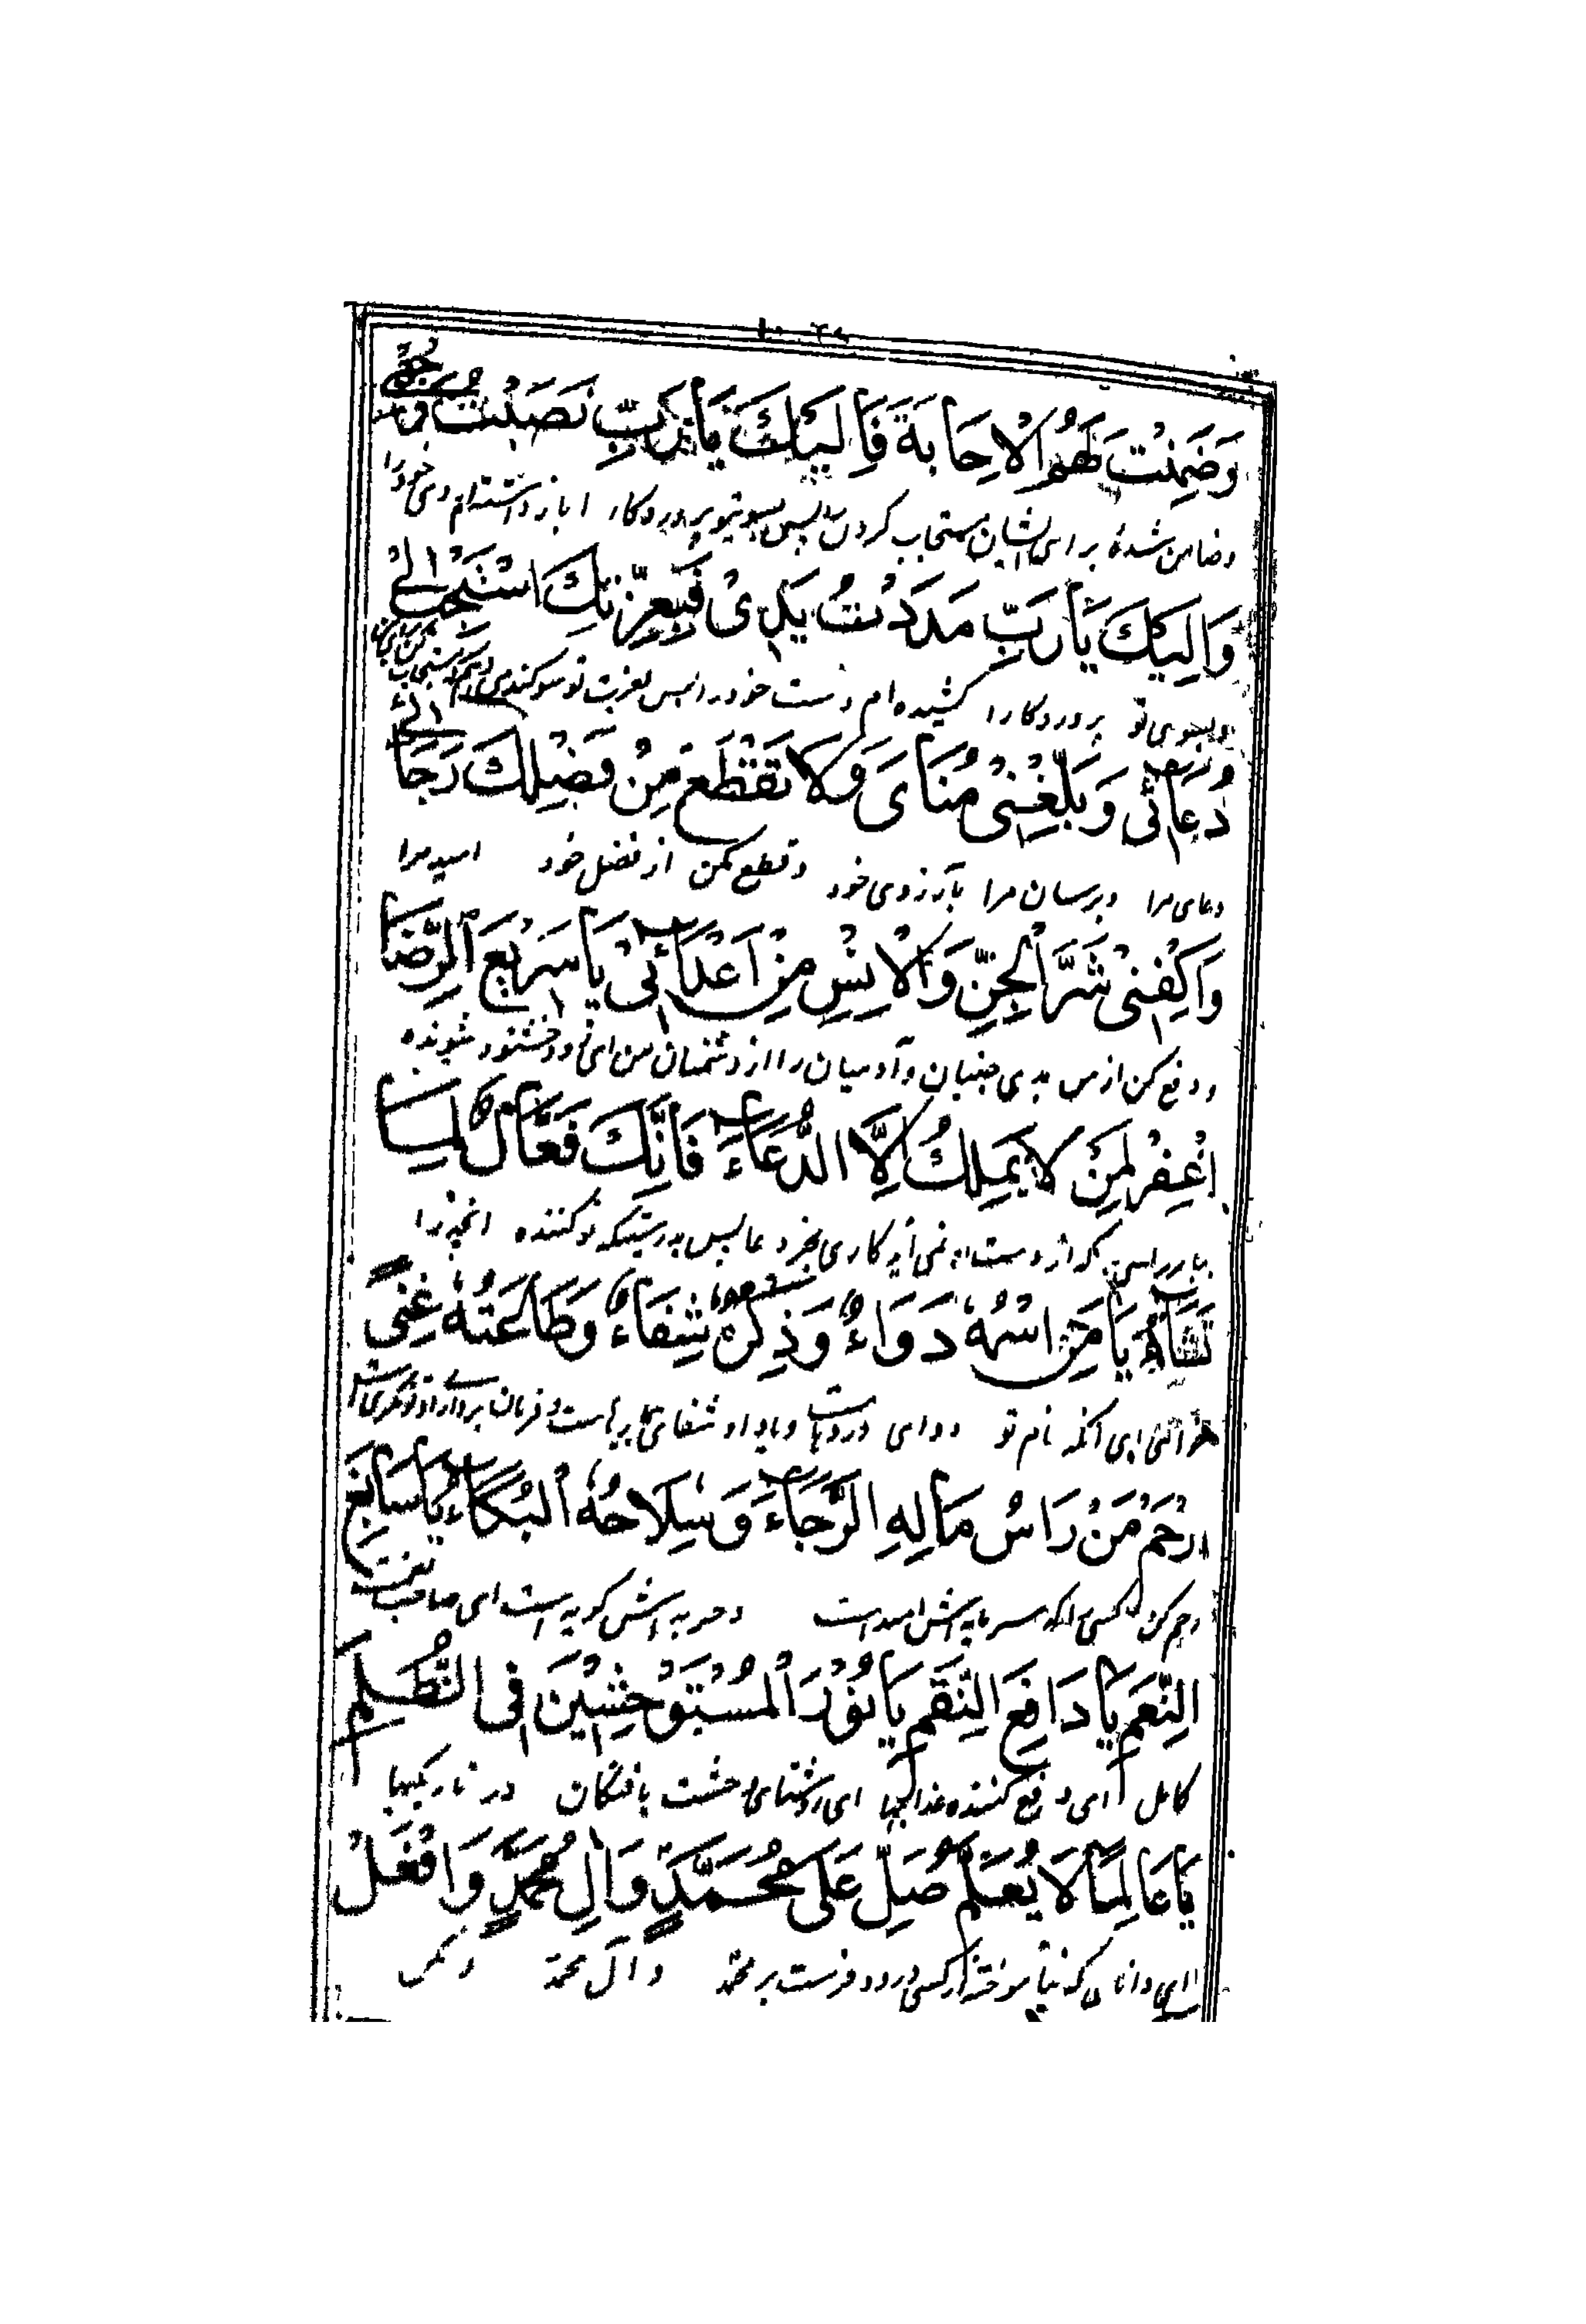 وَضَمِنْتَ لَهُمُ الْاِجَابَةَ فَاِلَيْكَ يَا رَبِّ نَصَبْتُ وَجْهِىْ
وضامن شدهٔ برای ایشان مستجاب کردن پس بسوی تو پروردکارا باز داشته‌ام روی خود را
وَاِلَيْكَ يَا رَبِّ مَدَدْتُ يَدِىْ فَبِعِزَّتِكَ اسْتَجِبْ لِىْ
وبسوی تو پروردکارا کشیده‌ام دست خود را پس بعزت تو سوکند
دُعَائِىْ وَبَلِّغْنِىْ مُنَاىَ وَلَا تَقْطَعْ مِنْ فَضْلِكَ رَجَائِىْ
دعای مرا وبرسان مرا بآرزوی خود وقطع مکن از فضل خود امید مرا
وَاكْفِنِىْ شَرَّ الْجِنِّ وَالْاِنْسِ مِنْ اَعْدَائِىْ يَا سَرِيْعَ الرِّضَا
ودفع کن از من بدی جنیان وآدمیان را از دشمنان من ای زود خشنود شونده
اغْفِرْ لِمَنْ لَا يَمْلِكُ اِلَّا الدُّعَاءَ فَاِنَّكَ فَعَّالٌ لِمَا
که از دست او نمی‌آید کاری بجز دعا پس بدرستیکه تو کننده آنچه را
تَشَاءُ يَا مَنِ اسْمُهٗ دَوَاءٌ وَذِكْرُهٗ شِفَاءٌ وَطَاعَتُهٗ غِنًى
خواهی ای آنکه نام تو دوای دردهاست ویاد او شفای
ارْحَمْ مَنْ رَاْسُ مَالِهِ الرَّجَاءَ وَسِلَاحُهُ الْبُكَاءُ يَا سَابِغَ
رحم کن کسی را که سرمایه‌اش امید است وحربه‌اش کریه است ای صاحب نعمت
النِّعَمِ يَا دَافِعَ النِّقَمِ يَا نُوْرَ الْمُسْتَوْحِشِيْنَ فِى الظُّلَمِ
کامل ای دفع کننده عذابها ای روشنای وحشت یافتکان در تاریکیها
يَا عَالِمًا لَا يُعَلَّمُ صَلِّ عَلٰى مُحَمَّدٍ وَاٰلِ مُحَمَّدٍ وَافْعَلْ
ای دانای که نیاموخته از کسی درود فرست بر محمّد وآل محمّد وبکن